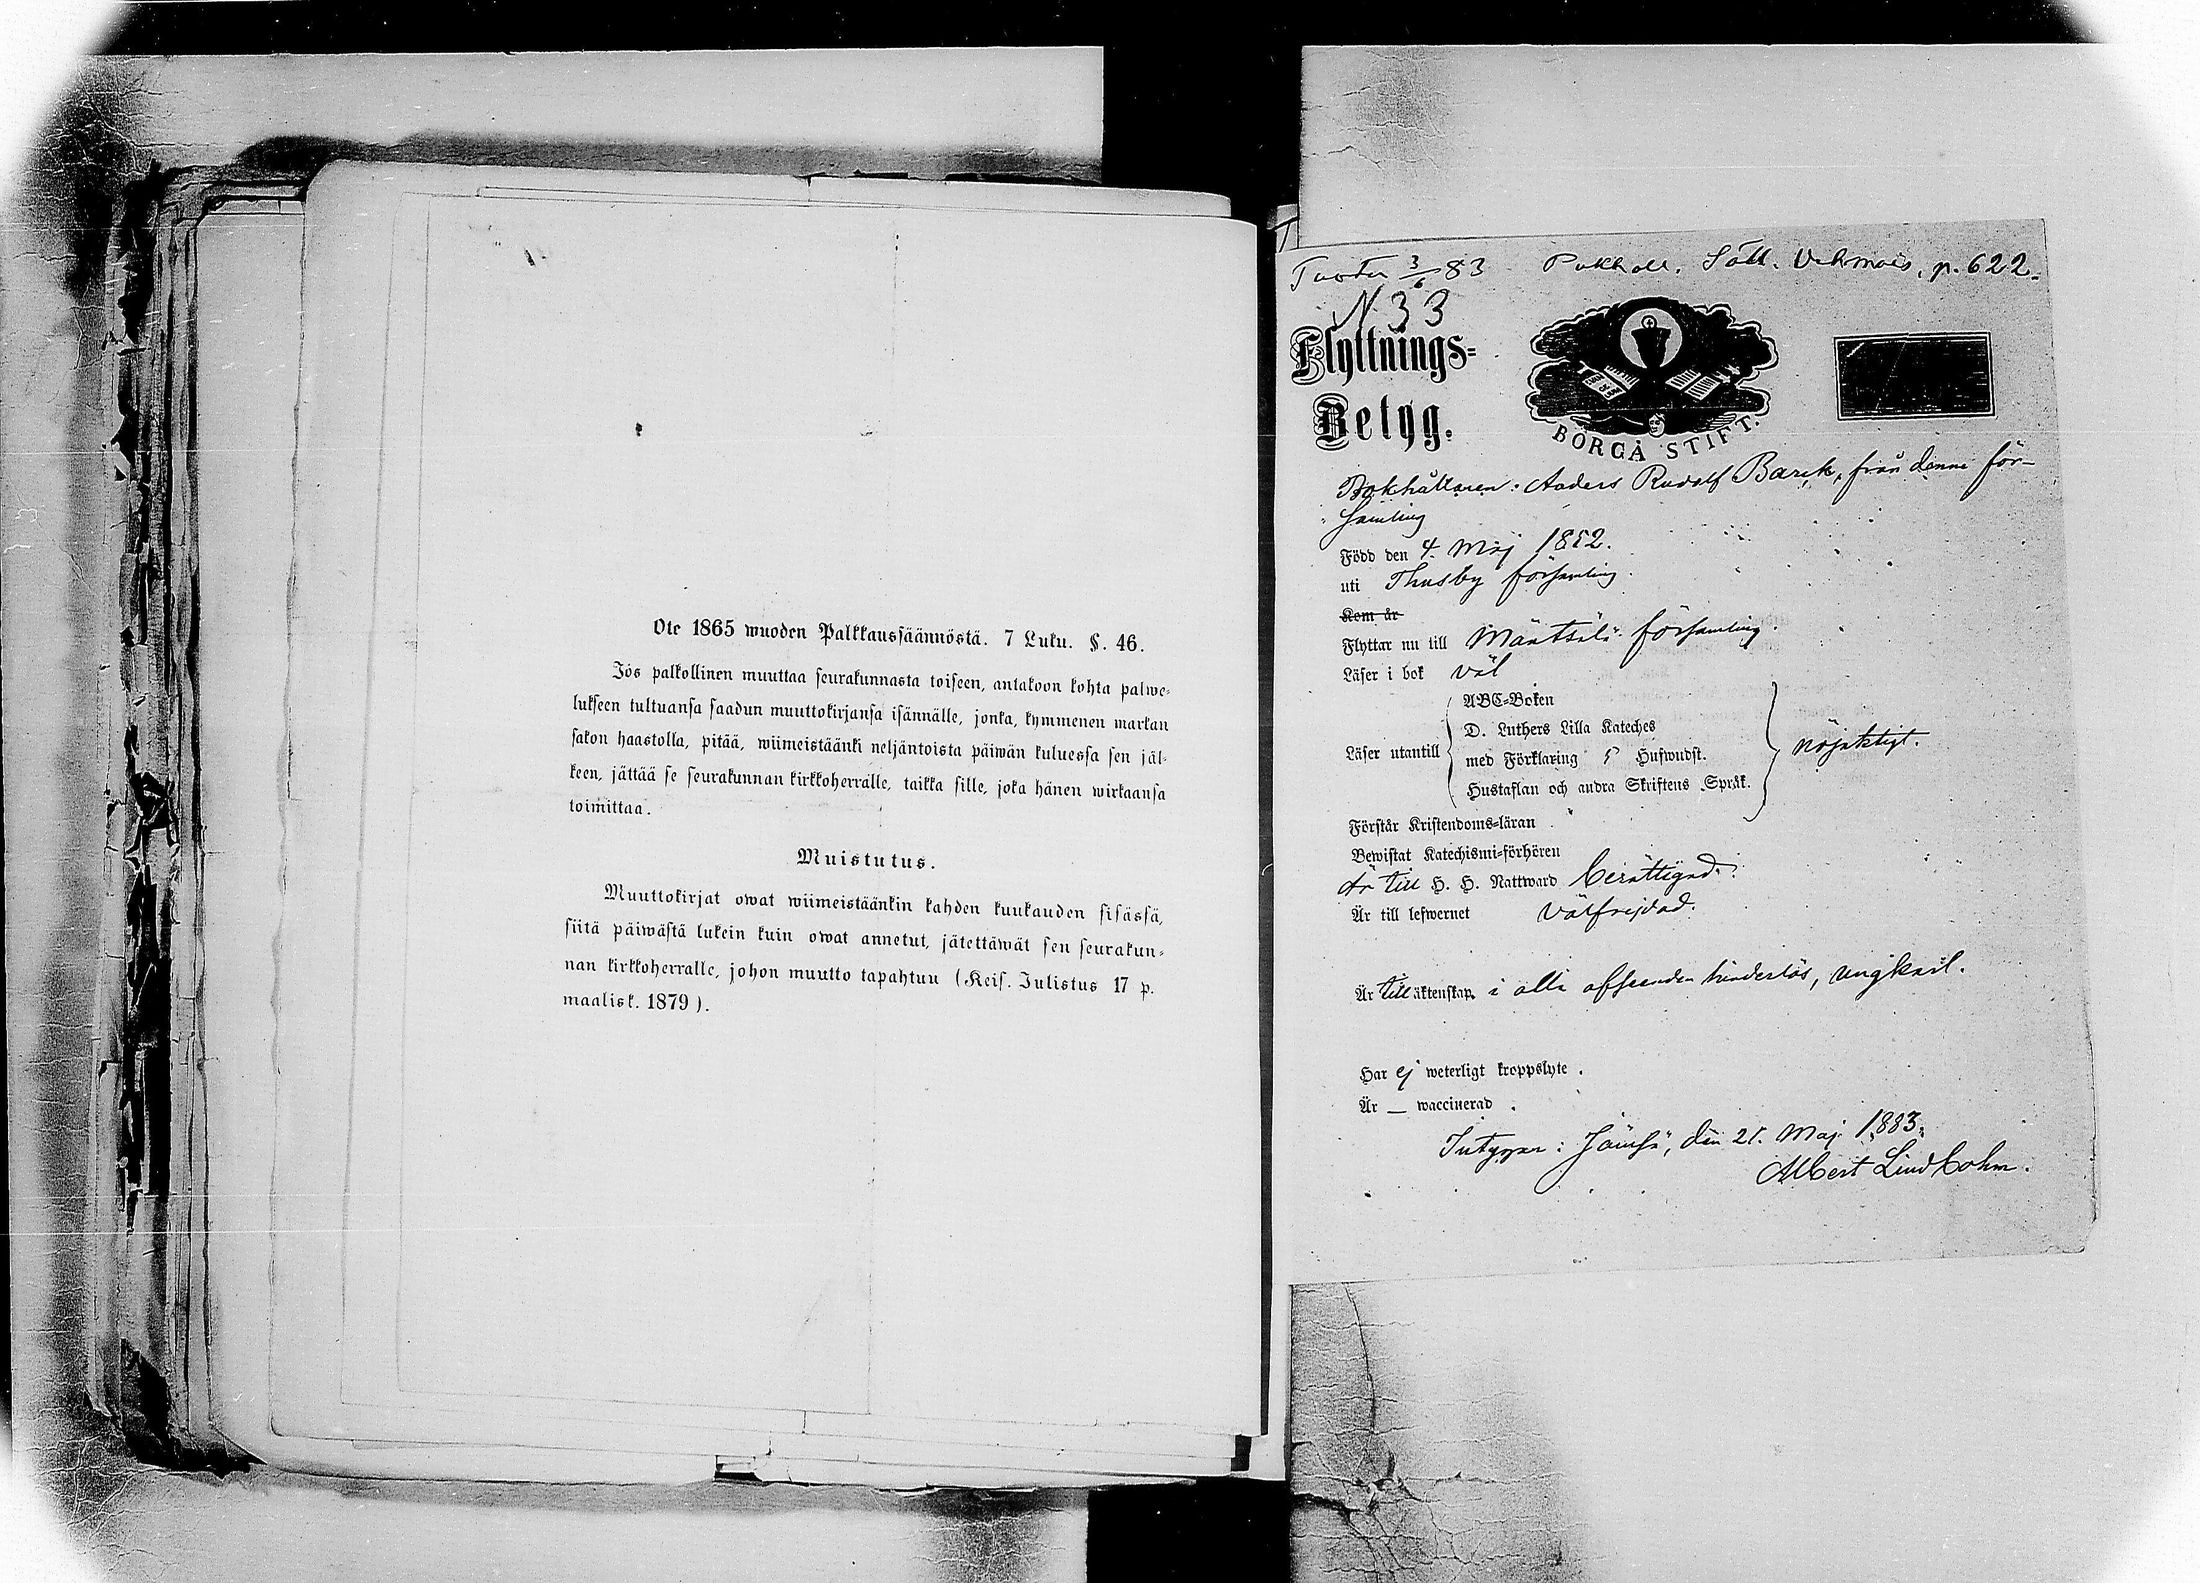 Ote 1865 wuoden Palkkaussäännöstä. 7 Luku. §. 46.
Jos palkollinen muuttaa seurakunnasta toiseen, antakoon kohta palwe-
lukseen tultuansa saadun muuttokirjansa isännälle, jonka, kymmenen markan
sakon haastolla, pitää, wiimeistäänki neljäntoista päiwän kuluessa sen jäl-
keen, jättää se seurakunnan kirkkoherralle, taikka sille, joka hänen wirkaansa
toimittaa.
Muistutus.
Muuttokirjat owat wiimeistäänkin kahden kuukauden sisässä,
siitä päiwästä lukein kuin owat annetut, jätettäwät sen seurakun-
nan kirkkoherralle, johon muutto tapahtuu (Keis. Julistus 17 p.
maalisk. 1879).
Tuotu 3/6 83 Pokholl. Sätt. p. 622.
N. 33
Flyttnings-
Betyg.
BORGÅ STIFT.
Bokhållaren: Anders Rudolf Barck, från denna för-
samling
Född den 4. Maj 1852.
uti Thusby församling.
Kom år
Flyttar nu till Mäntsälä församling.
Läser i bok väl
ABC-Boken
D. Luthers Lilla Kateches
Läser utantill med Förklaring 5 Hufwudst. nöjaktigt.
Hustaflan och andra Skriftens Språk.
Förstår Kristendoms-läran
Bewistat Katechismi-förhören
Är till H. H. Nattward berättigad.
Är till lefwernet välfrejdad.
Är till äktenskap i alla afseenden hinderlös, ungkarl.
Har ej weterligt kroppslyte.
Är — waccinerad.
Intygar: Jämsä, den 21. Maj 1883.
Albert Lindbohm.